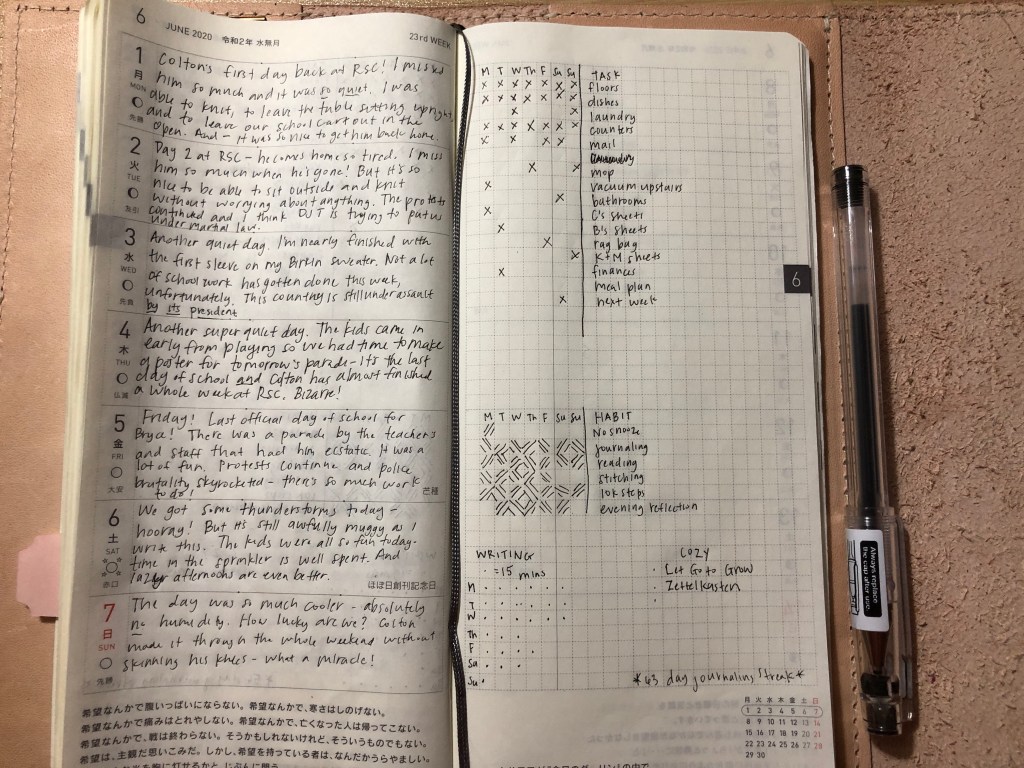 6
JUNE 2020 令和2年 水無月
23rd WEEK
1
月
MON
先勝
Colton's first day back at RSC! I missed
him so much and it was so quiet. I was
able to knit, to leave the table sitting upright
and to leave our school cart out in the
open. And - it was so nice to get him back home.
2
火
TUE
友引
Day 2 at RSC - he comes home so tired. I miss
him so much when he's gone! But it's so
nice to be able to sit outside and knit
without worrying about anything. The protests
continued and I think DJT is trying to put us
under martial law.
3
水
WED
先負
Another quiet day. I'm nearly finished with
the first sleeve on my Birkin sweater. Not a lot
of school work has gotten done this week,
unfortunately. This country is still under assault
by its president
4
木
THU
仏滅
Another super quiet day. The kids came in
early from playing so we had time to make
a poster for tomorrow's parade - it's the last
day of school and Colton has almost finished
a whole week at RSC. Bizarre!
5
金
FRI
大安
Friday! Last official day of school for
Bryce! There was a parade by the teachers
and staff that had him ecstatic. It was a
lot of fun. Protests continue and police
brutality skyrocketed - there's so much work
to do!
芒種
6
土
SAT
赤口
We got some thunderstorms today -
hooray! But it's still awfully muggy as I
write this. The kids were all so fun today -
time in the sprinkler is well spent. And
lazy afternoons are even better.
ほぼ日創刊記念日
7
日
SUN
先勝
The day was so much cooler - absolutely
no humidity. How lucky are we? Colton
made it through the whole weekend without
skinning his knees - what a miracle!
希望なんかで腹いっぱいにならない。希望なんかで、寒さはしのげない。
希望なんかで痛みはとれやしない。希望なんかで、亡くなった人は帰ってこない。
希望なんかで、戦は終わらない。そうかもしれないけれど、そういうものでもない。
希望は、主観だ思いこみだ。しかし、希望を持っている者は、なんだかうらやましい。
M T W Th F Sa Su TASK
x x x x x x x floors
x x x x x x x dishes
x x laundry
x x x x x x x counters
x x x x mail
x x mop
x vacuum upstairs
x bathrooms
x C's sheets
x B's sheets
x rag bag
x K+M sheets
x finances
meal plan
x next week
6
M T W Th F Sa Su HABIT
No snooze
journaling
reading
stitching
10k steps
evening reflection
WRITING
· = 15 mins
M · · · · · · ·
T · · · · · ·
W · · · · · · ·
Th · · ·
F · · ·
Sa · · ·
Su ·
COZY
· Let Go to Grow
· Zettelkasten
·
*43 day journaling streak*
月 火 水 木 金 土 日
1 2 3 4 5 6 7
8 9 10 11 12 13 14
15 16 17 18 19 20 21
22 23 24 25 26 27 28
29 30
Always replace
the cap after use.